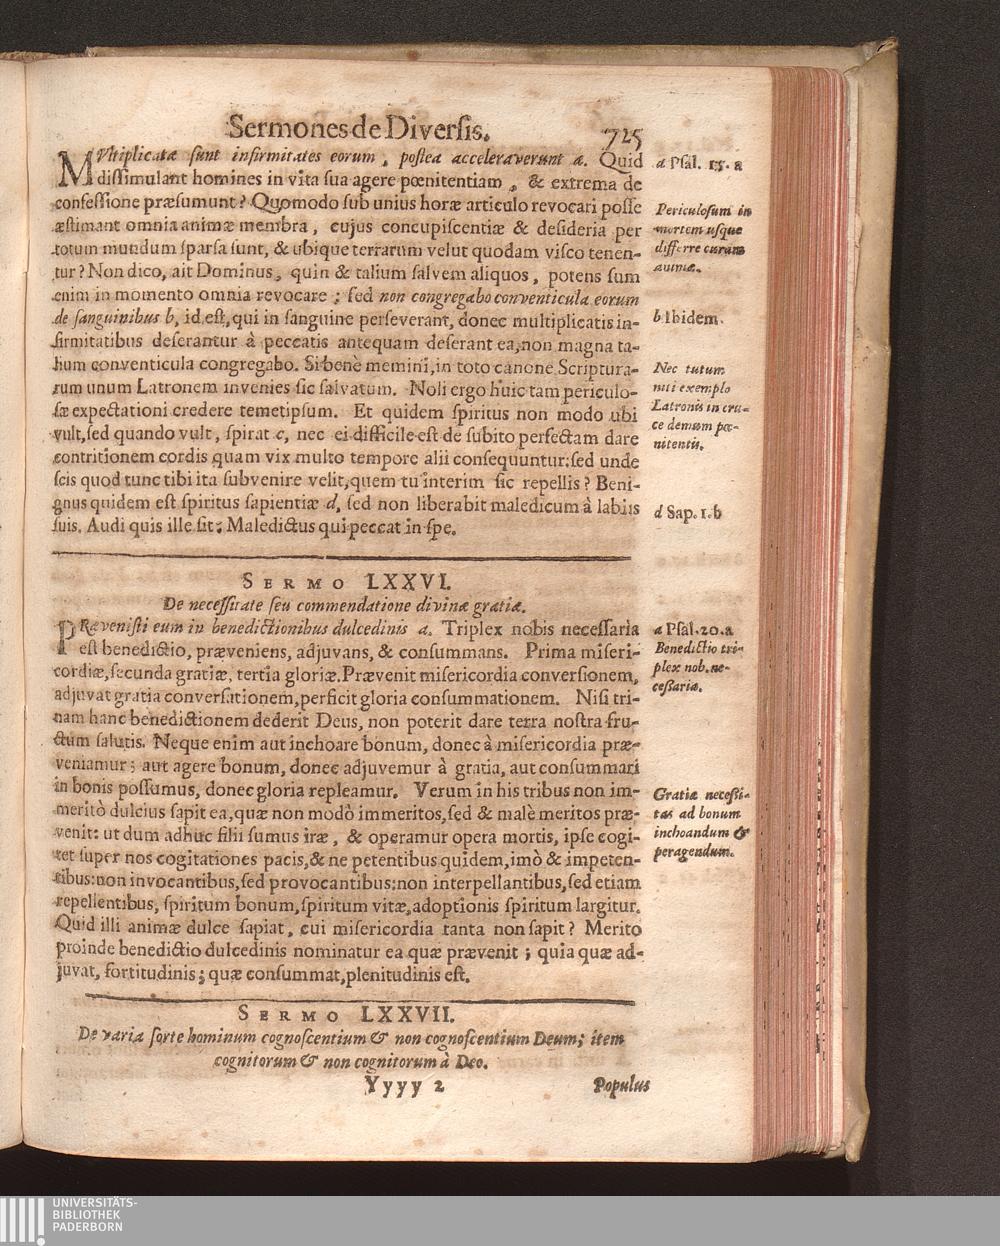 Sermones de Diversis.
725
MVltiplicatæ sunt infirmitates eorum, postea acceleraverunt a. Quid
dissimulant homines in vita sua agere pœnitentiam, & extrema de
confessione præsumunt? Quomodo sub unius horæ articulo revocari posse
æstimant omnia animæ membra, cujus concupiscentiæ & desideria per
totum mundum sparsa sunt, & ubique terrarum velut quodam visco tenen-
tur? Non dico, ait Dominus, quin & talium salvem aliquos, potens sum
enim in momento omnia revocare; sed non congregabo conventicula eorum
de sanguinibus b, id est, qui in sanguine perseverant, donec multiplicatis in-
firmitatibus deserantur à peccatis antequam deserant ea, non magna ta-
lium conventicula congregabo. Si benè memini, in toto canone Scriptura-
rum unum Latronem invenies sic salvatum. Noli ergo huic tam periculo-
sæ expectationi credere temetipsum. Et quidem spiritus non modo ubi
vult, sed quando vult, spirat c, nec ei difficile est de subito perfectam dare
contritionem cordis quam vix multo tempore alii consequuntur: sed unde
scis quod tunc tibi ita subvenire velit, quem tu interim sic repellis? Beni-
gnus quidem est spiritus sapientiæ d, sed non liberabit maledicum à labiis
suis. Audi quis ille sit: Maledictus qui peccat in spe.
a Psal. 15. a
Periculosum in
mortem usque
differre curam
animæ.
b Ibidem.
Nec tutum
niti exemplo
Latronis in cru-
ce demum pœ-
nitentis.
d Sap. 1. b
SERMO LXXVI.
De necessitate seu commendatione divinæ gratiæ.
PRævenisti eum in benedictionibus dulcedinis a. Triplex nobis necessaria
est benedictio, præveniens, adjuvans, & consummans. Prima miseri-
cordiæ, secunda gratiæ, tertia gloriæ. Prævenit misericordia conversionem,
adjuvat gratia conversationem, perficit gloria consummationem. Nisi tri-
nam hanc benedictionem dederit Deus, non poterit dare terra nostra fru-
ctum salutis. Neque enim aut inchoare bonum, donec à misericordia præ-
veniamur; aut agere bonum, donec adjuvemur à gratia, aut consummari
in bonis possumus, donec gloria repleamur. Verum in his tribus non im-
meritò dulcius sapit ea, quæ non modò immeritos, sed & malè meritos præ-
venit: ut dum adhuc filii sumus iræ, & operamur opera mortis, ipse cogi-
tet super nos cogitationes pacis, & ne petentibus quidem, imò & impeten-
tibus: non invocantibus, sed provocantibus: non interpellantibus, sed etiam
repellentibus, spiritum bonum, spiritum vitæ, adoptionis spiritum largitur.
Quid illi animæ dulce sapiat, cui misericordia tanta non sapit? Merito
proinde benedictio dulcedinis nominatur ea quæ prævenit; quia quæ ad-
juvat, fortitudinis; quæ consummat, plenitudinis est.
a Psal. 20. a
Benedictio tri-
plex nob. ne-
cessaria.
Gratiæ necessi-
tas ad bonum
inchoandum &
peragendum.
SERMO LXXVII.
De varia sorte hominum cognoscentium & non cognoscentium Deum; item
cognitorum & non cognitorum à Deo.
Yyyy 2
Populus
UNIVERSITÄTS-
BIBLIOTHEK
PADERBORN